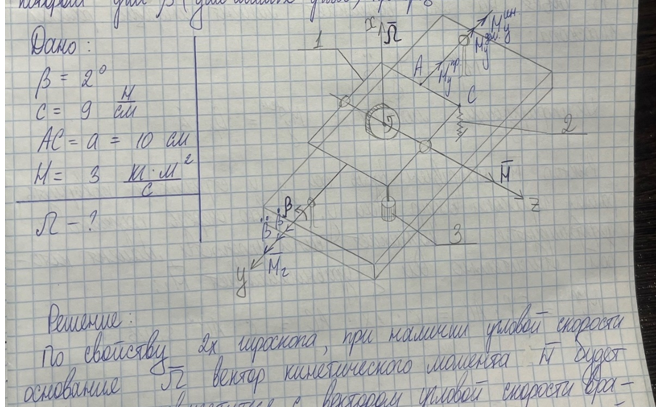 угол β (угол
Дано:
β = 2°
C = 9 Н/см
AC = a = 10 см
H = 3 кг·м²/с
Ω - ?
1
x
Ω̄
A
C
2
H̄
z
3
β
β̈
β̇
M̄г
y
Решение:
По свойству 2х гироскопа, при наличии угловой скорости
основание Ω̄ вектор кинетического момента H̄ будет
с вектором угловой скорости вра-